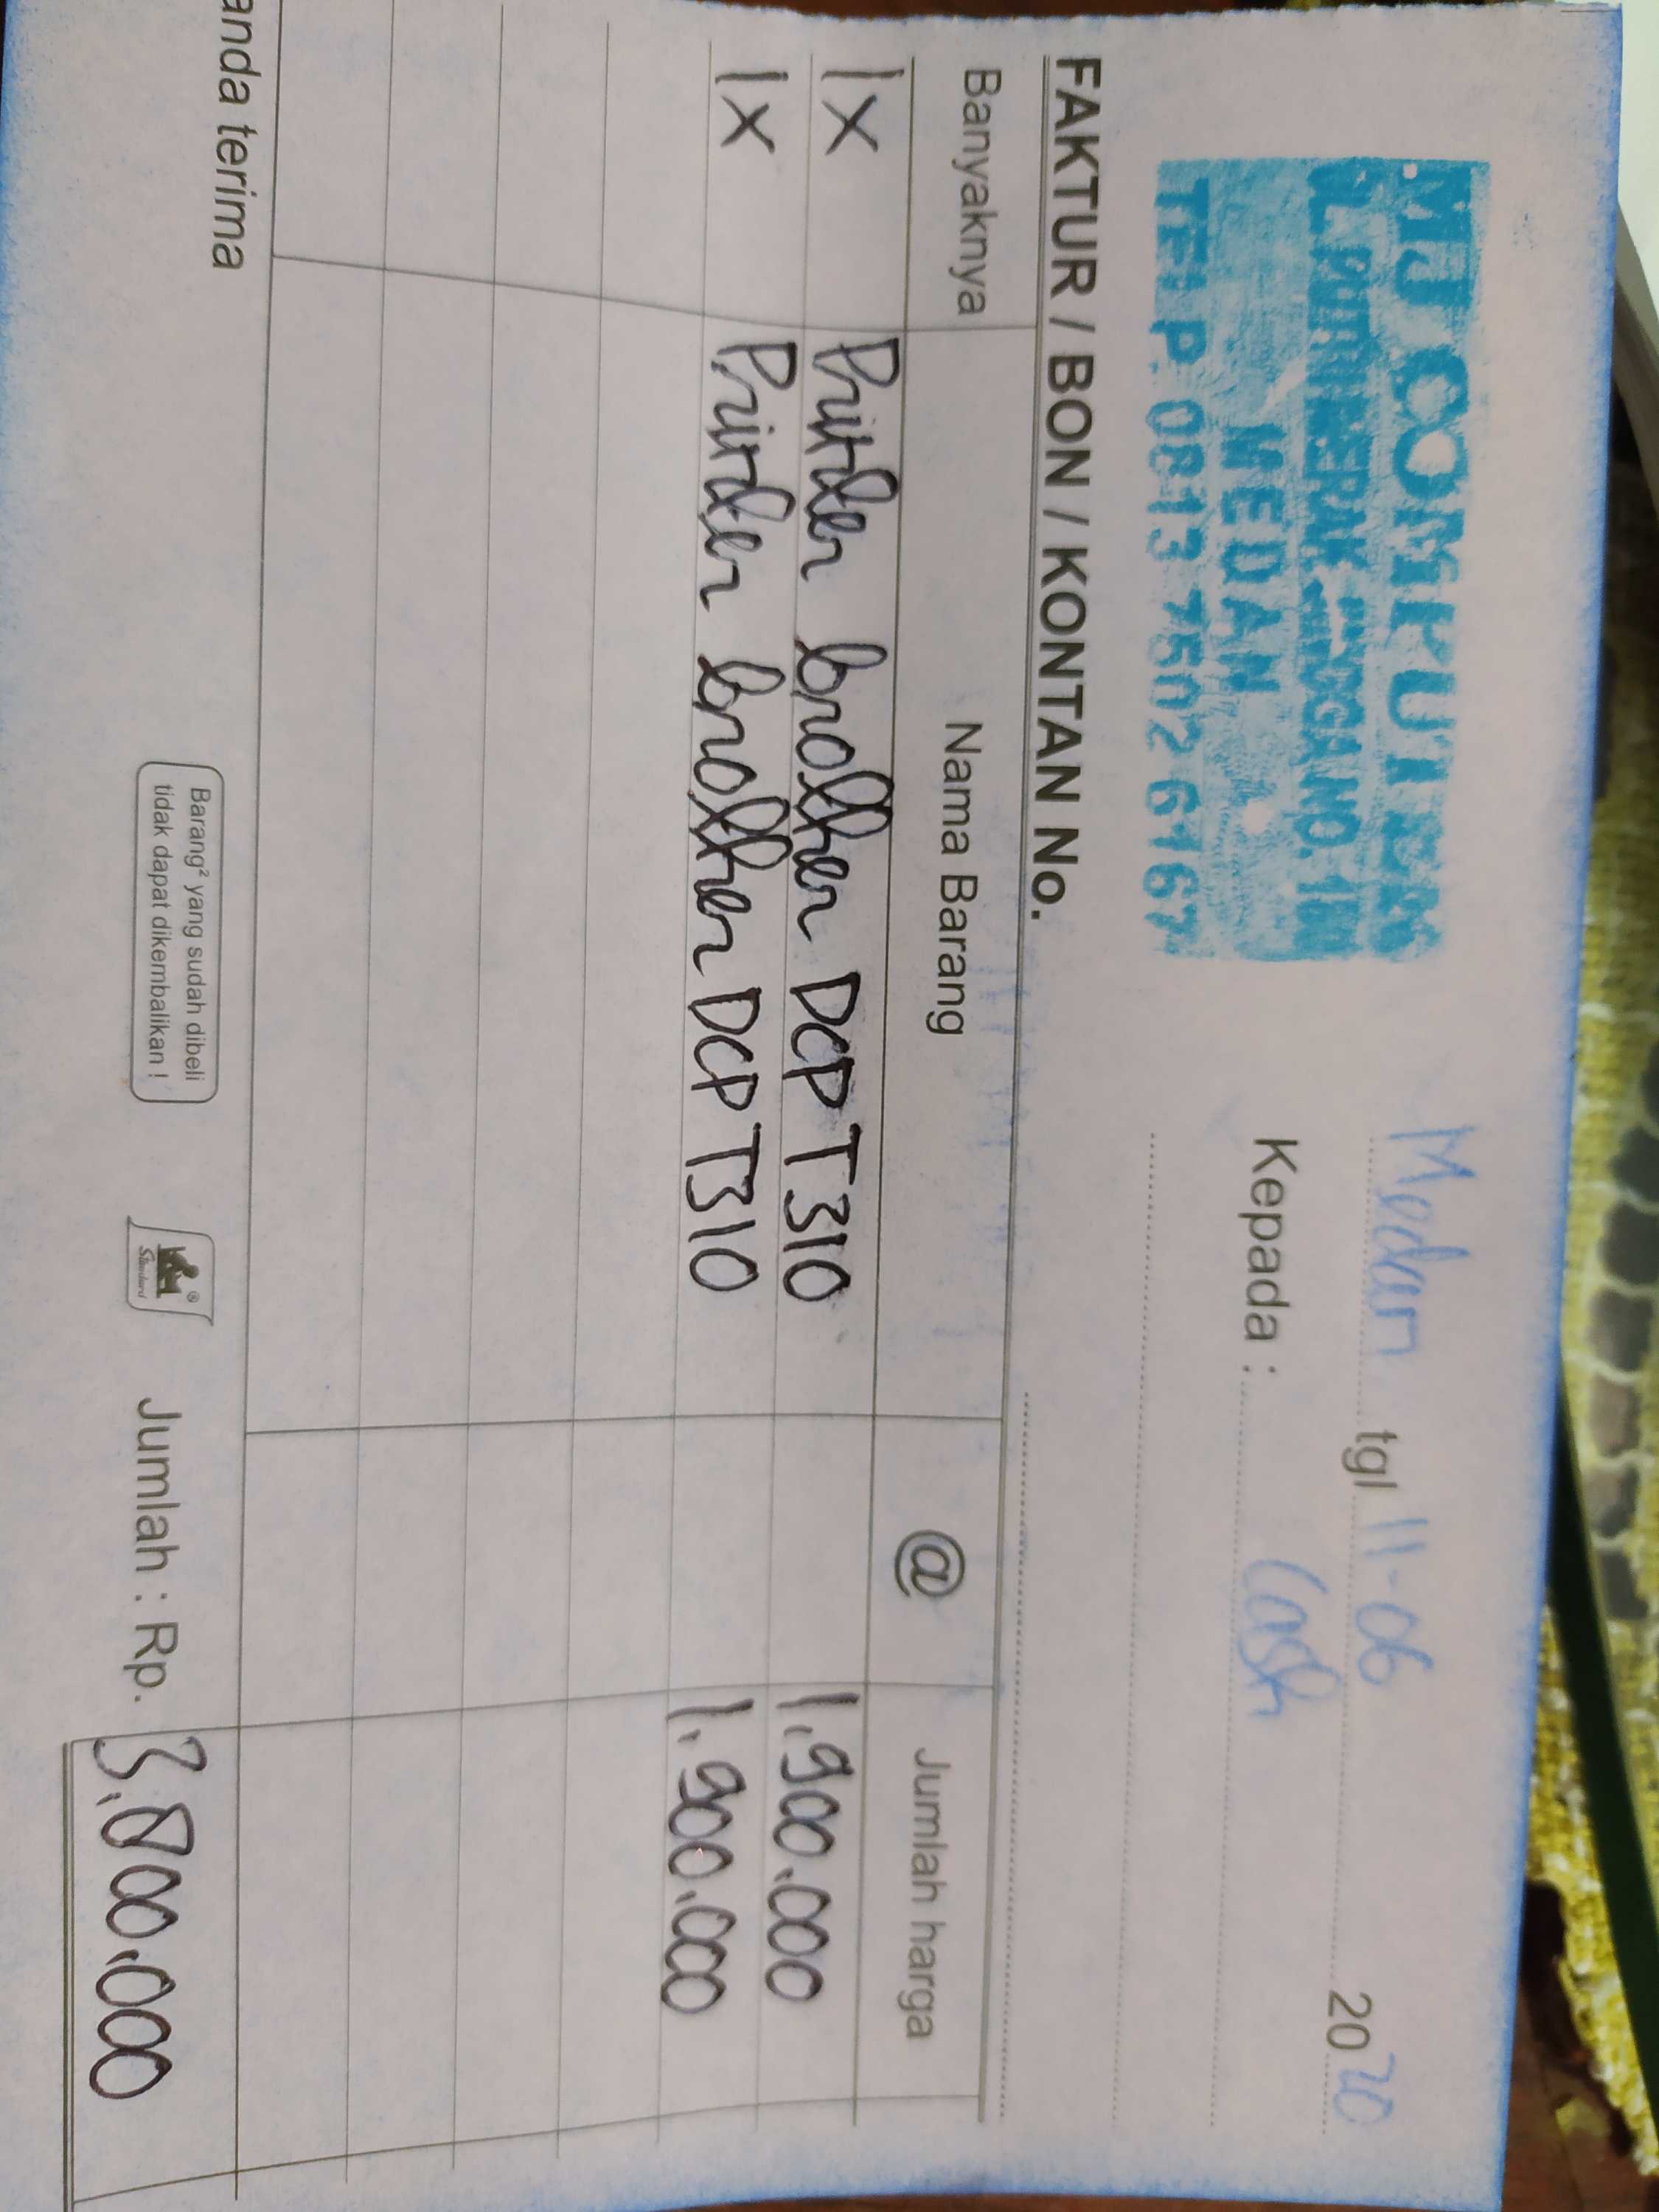 MJ COMPUTER
JL. PUTRI MERAK JINGGA NO. 
MEDAN
TELP. 0813 7502 6167
Medan tgl 11-06 2020
Kepada : Cash
FAKTUR / BON / KONTAN No.
Banyaknya Nama Barang @ Jumlah harga
1x Printer brother DCP T310 1.900.000
1x Printer brother DCP T310 1.900.000
anda terima
Barang² yang sudah dibeli
tidak dapat dikembalikan !
Standard ®
Jumlah : Rp. 3.800.000